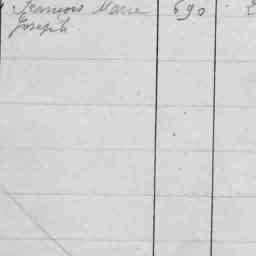 François Marie 690
Joseph